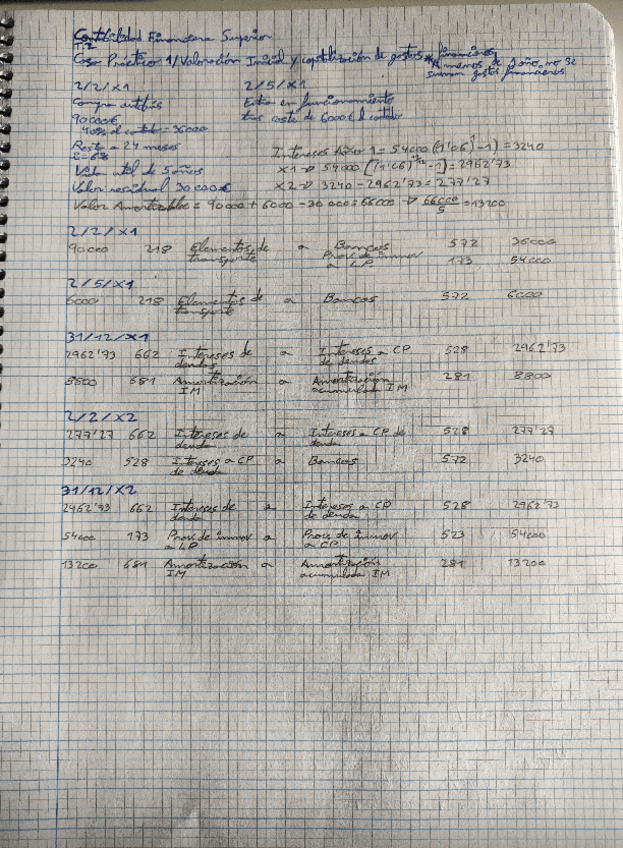 Contabilidad Financiera Superior
T.2
Caso Práctico 1/Valoración Inicial y capitalización de gastos financieros
* Al menos de 1 año, no se suman gastos financieros
2/2/X1
Compra autobús
90000€
40% al contado = 36000
Resto a 24 meses
i = 6%
Vida util de 5 años
Valor residual 30000€
2/5/X1
Entra en funcionamiento
tras coste de 6000€ al contado
Intereses Año 1 = 54000 ((1'06)^1 - 1) = 3240
X1 → 54000 [(1'06)^11/12 - 1] = 2962'73
X2 → 3240 - 2962'73 = 277'27
Valor Amortizable = 90000 + 6000 - 30000 = 66000 → 66000/5 = 13200
2/2/X1
90000 218 Elementos de transporte a Bancos 572 36000
Prov. de inmov a LP 173 54000
2/5/X1
6000 218 Elementos de transporte a Bancos 572 6000
31/12/X1
2962'73 662 Intereses de deudas a Intereses a CP de deudas 528 2962'73
8800 681 Amortización IM a Amortización acumulada IM 281 8800
2/2/X2
277'27 662 Intereses de deuda a Intereses a CP de deuda 528 277'27
3240 528 Intereses a CP de deuda a Bancos 572 3240
31/12/X2
2962'73 662 Intereses de deuda a Intereses a CP de deuda 528 2962'73
54000 173 Prov. de inmov a LP a Prov. de inmov a CP 523 54000
13200 681 Amortización IM a Amortización acumulada IM 281 13200